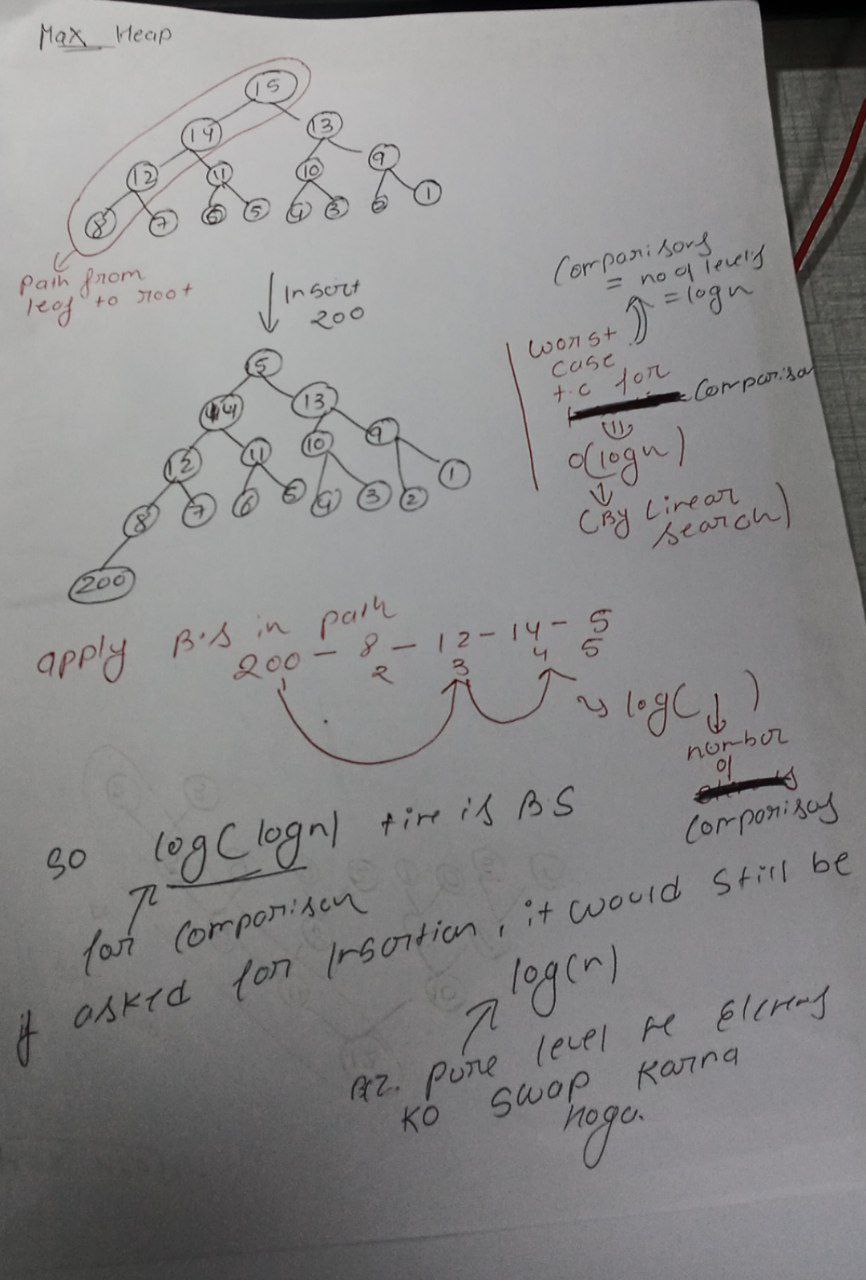 Max Heap
15
14 13
12 11 10 9
8 7 6 5 4 3 2 1
Path from
leaf to root
Insert
200
Comparisons
= no of levels
= log n
worst
case
t.c for
Comparison
O(log n)
(By Linear
search)
5
14 13
12 11 10 9
8 7 6 5 4 3 2 1
200
apply B.S in path
200 - 8 - 12 - 14 - 5
1 2 3 4 5
log( )
number
of
Comparisons
so log(log n) time is B S
for comparison
if asked for Insertion, it would still be
log(n)
pure level pe elements
ko swap karna
hoga.